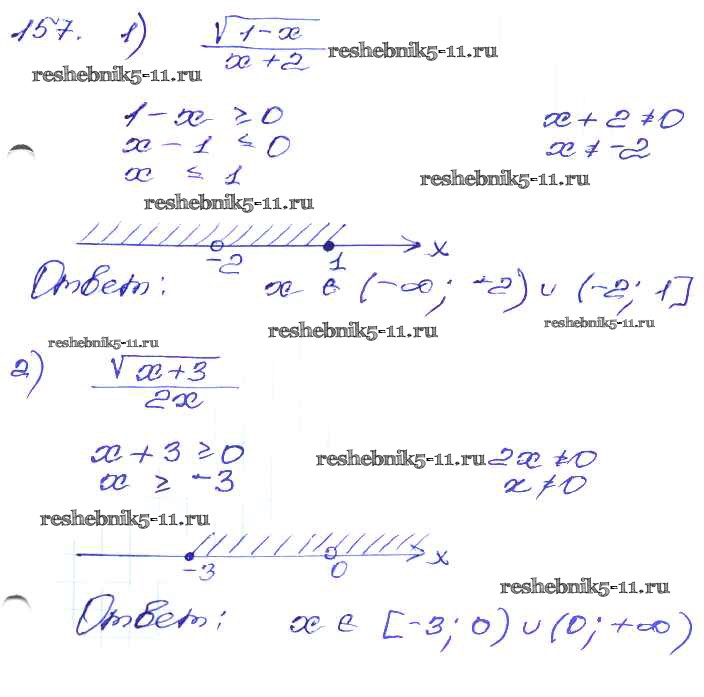 157. 1) √(1-x) / (x+2) reshebnik5-11.ru
reshebnik5-11.ru
1-x ≥ 0 x+2 ≠ 0
x-1 ≤ 0 x ≠ -2
x ≤ 1 reshebnik5-11.ru
reshebnik5-11.ru
-2 1 x
Ответ: x ∈ (-∞; -2) ∪ (-2; 1]
reshebnik5-11.ru reshebnik5-11.ru
reshebnik5-11.ru
2) √(x+3) / 2x
x+3 ≥ 0 reshebnik5-11.ru 2x ≠ 0
x ≥ -3 x ≠ 0
reshebnik5-11.ru
-3 0 x
reshebnik5-11.ru
Ответ: x ∈ [-3; 0) ∪ (0; +∞)